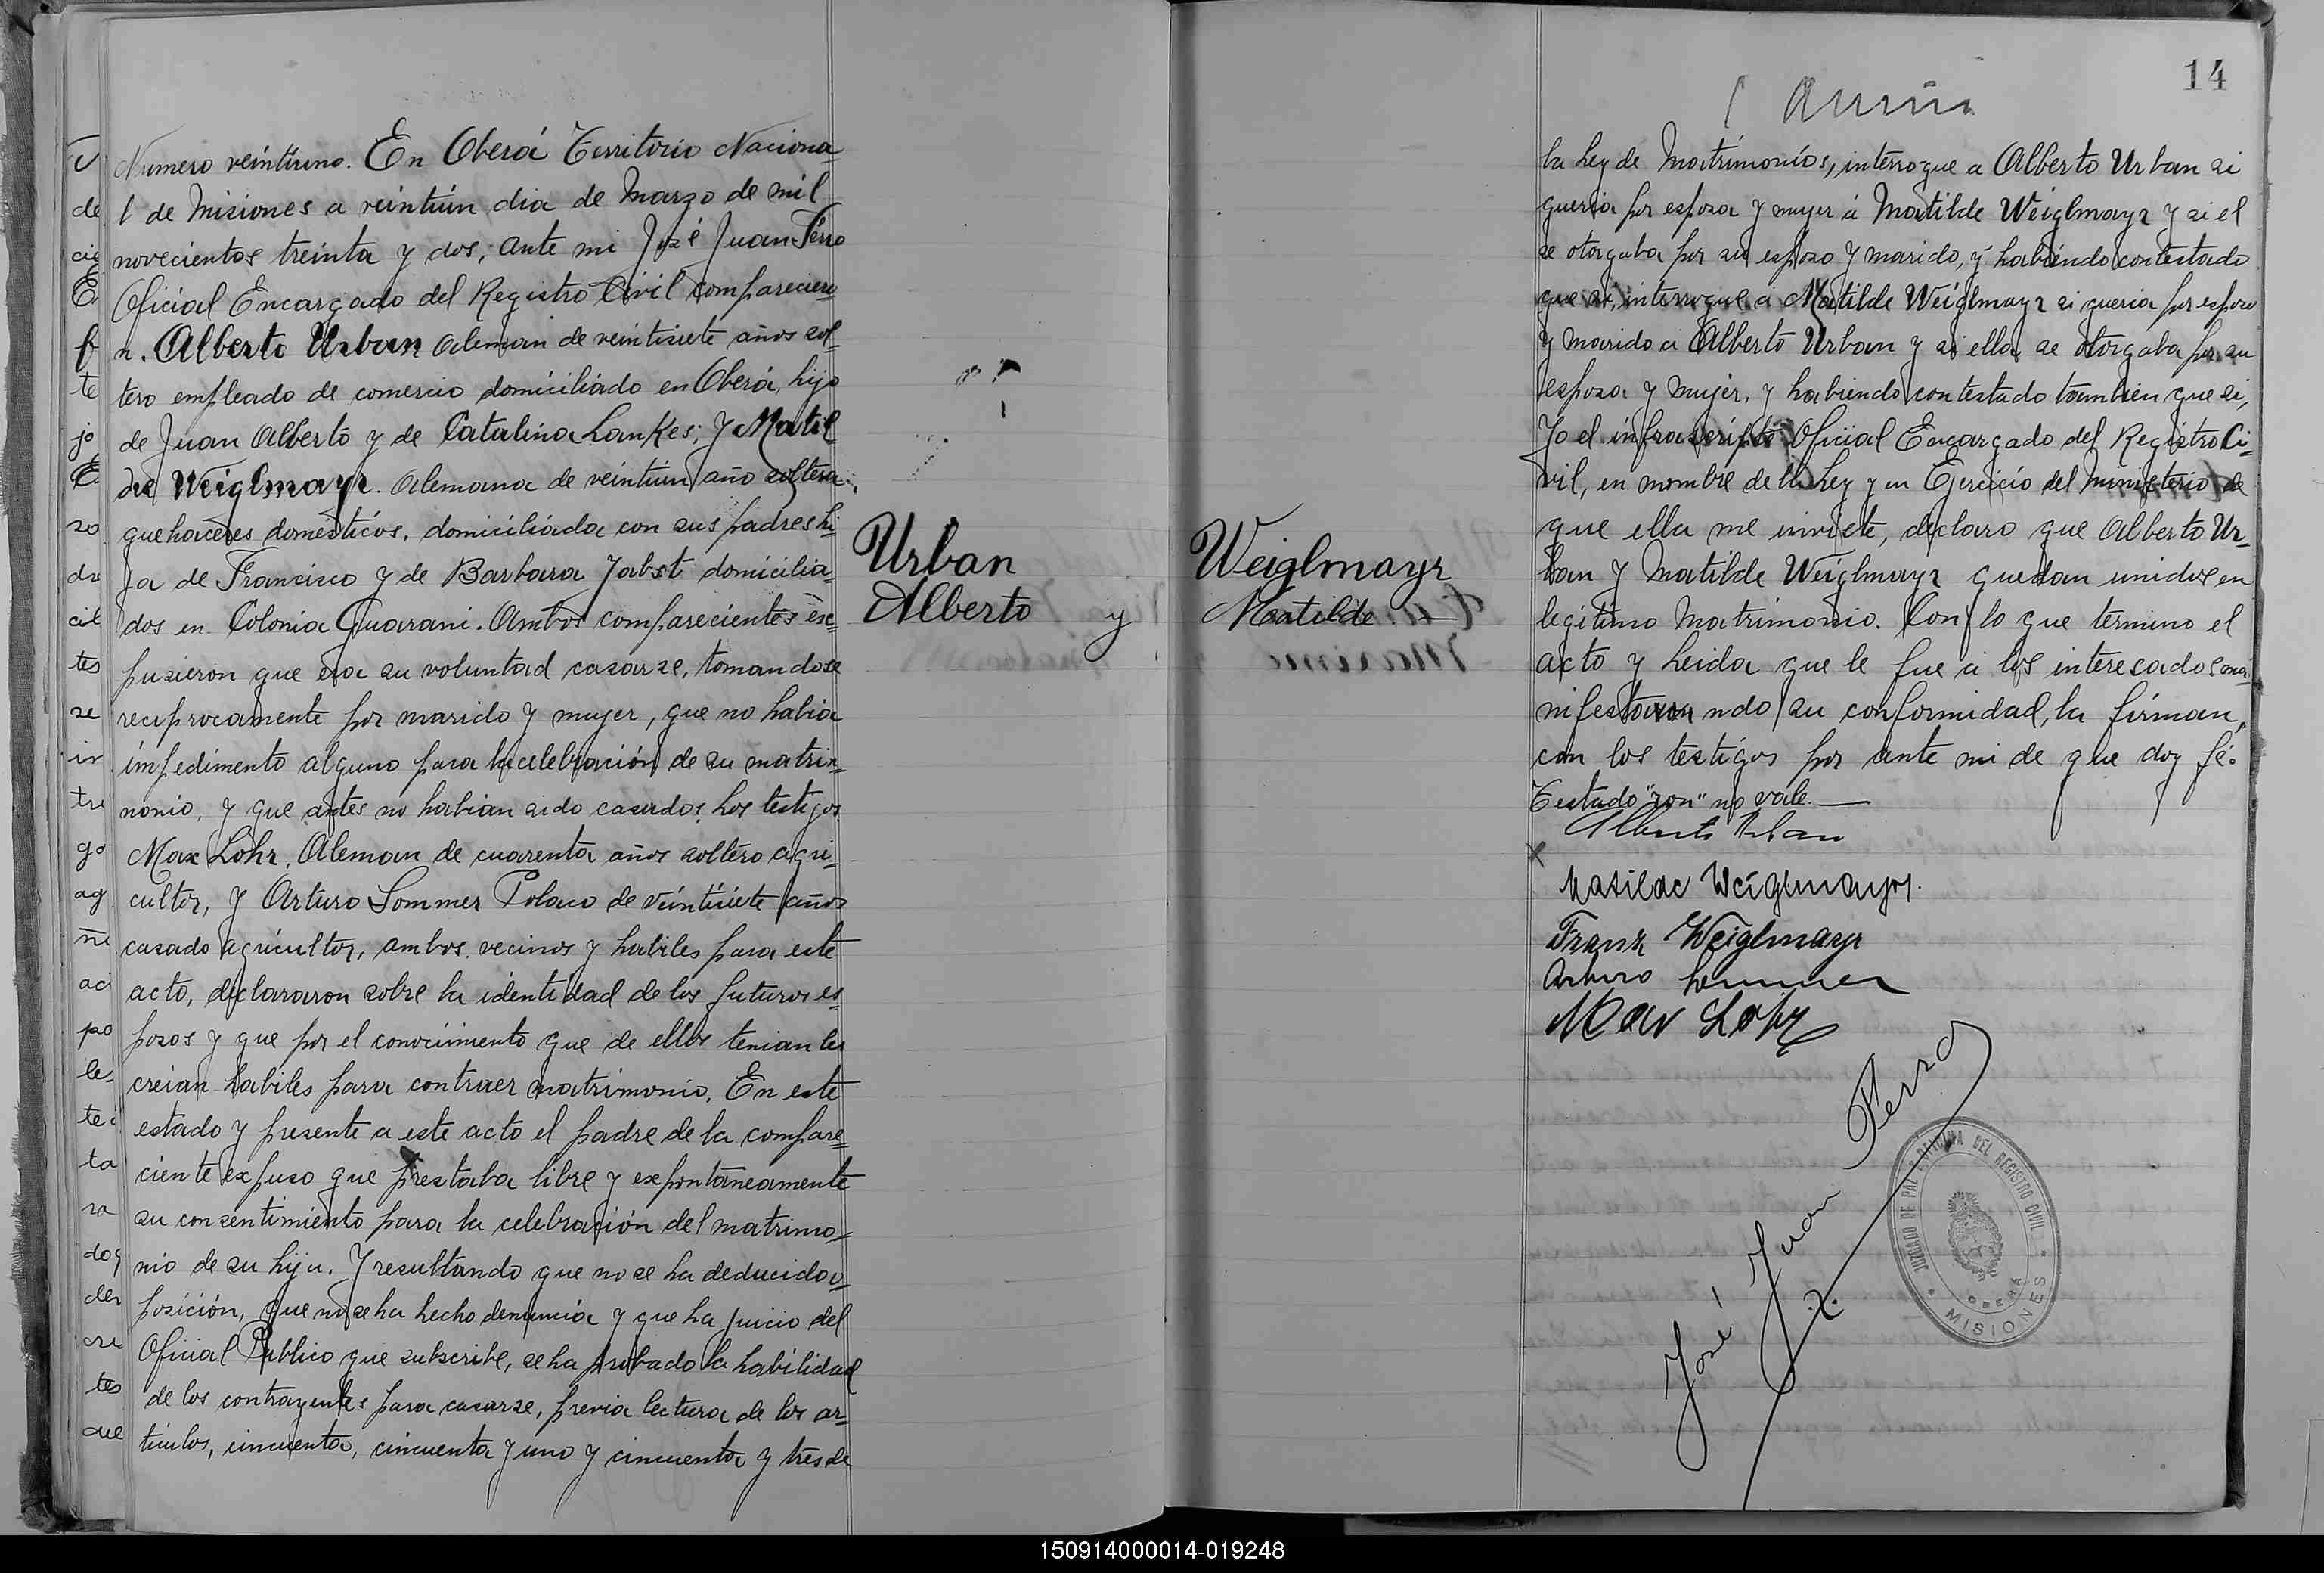 Numero veintiuno. En Oberá Territorio Naciona=
l de Misiones a veintiún dia de Marzo de mil
novecientos treinta y dos, ante mi José Juan Ferro
Oficial Encargado del Registro Civil compareciero
n. Alberto Urban aleman de veintisiete años sol=
tero empleado de comercio domiciliado en Oberá, hijo
de Juan Alberto y de Catalina Lankes; y Matil
de Weiglmayr. alemana de veintiún año soltera
quehaceres domésticos. domiciliada con sus padres hi
ja de Francisco y de Barbara Jabst domicilia=
dos en Colonia Guarani. Ambos comparecientes ex=
pusieron que era su voluntad casarse, tomandose
reciprocamente por marido y mujer, que no habia
impedimento alguno para la celebración de su matri=
monio, y que antes no habian sido casados. Los testigos
Max Lohr, Aleman de cuarenta años soltero agri=
cultor, y Arturo Sommer Polaco de veintisiete años
casado agricultor, ambos vecinos y habiles para este
acto, declararon sobre la identidad de los futuros es
posos y que por el conocimiento que de ellos tenian les
creian habiles para contraer matrimonio. En este
estado y presente a este acto el padre de la compare=
ciente expuso que prestaba libre y expontaneamente
su consentimiento para la celebración del matrimo=
nio de su hija. Y resultando que no se ha deducido o=
posición, que no se ha hecho denuncia y que ha juicio del
Oficial Publico que subscribe, se ha probado la habilidad
de los contrayentes para casarse, previa lectura de los ar=
ticulos, cincuenta, cincuenta y uno y cincuenta y tres de
Urban
Alberto y
Weiglmayr
Matilde.
14
la Ley de Matrimonios, interrogue a Alberto Urban si
queria por esposa y mujer á Matilde Weiglmayr y si el
se otorgaba por su esposo y marido, y habiendo contestado
que si, interrogue á Matilde Weiglmayr si queria por esposo
y marido a Alberto Urban y si ella se otorgaba por su
esposa y mujer, y habiendo contestado tambien que si,
Yo el infrascripto Oficial Encargado del Registro Ci=
vil, en nombre de la Ley y en Ejercicio del Ministerio de
que ella me inviste, declaro que Alberto Ur=
ban y Matilde Weiglmayr quedan unidos en
legitimo Matrimonio. Con lo que termino el
acto y leida que le fue a los interesados ma=
nifestaron ndo su conformidad, la firman,
con los testigos por ante mi de que doy fé.
Testado "ron" no vale.
Alberto Urban
x
Matilde Weiglmayr.
Franz Weiglmayr
Arturo Sommer
Max Lohr
José Juan Ferro
JUZGADO DE PAZ Y OFICINA DEL REGISTRO CIVIL
OBERÁ
MISIONES
150914000014-019248